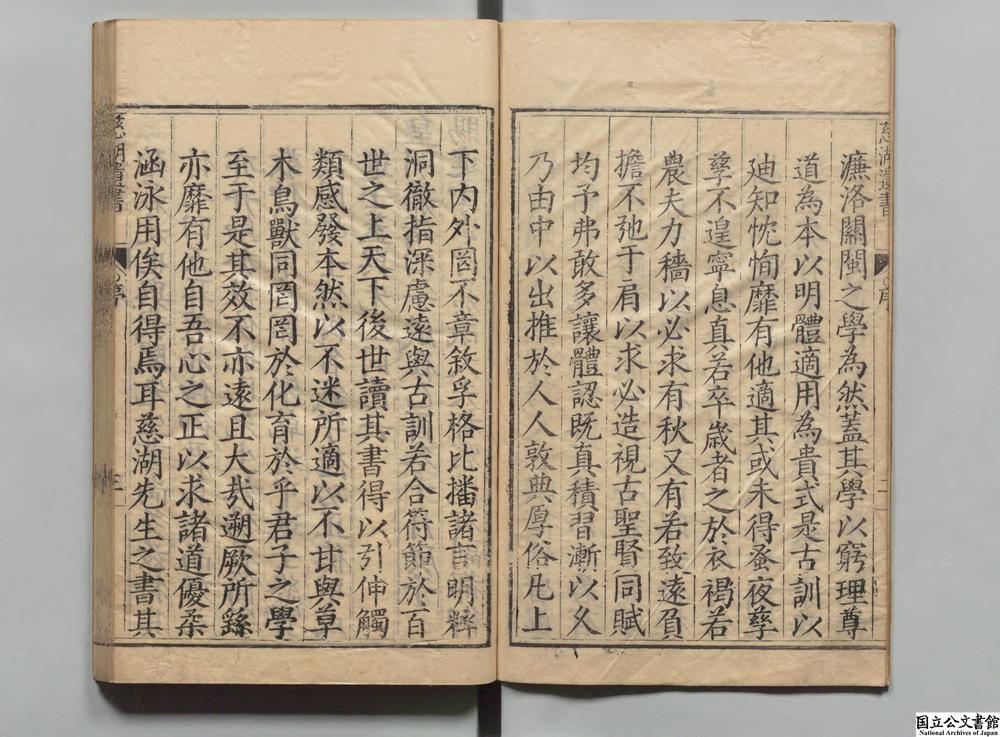 慈湖遺書
二
濂洛關閩之學為然蓋其學以窮理尊
道為本以明體適用為貴式是古訓以
迪知忱恂靡有他適其或未得蚤夜孳
孳不遑寧息真若卒歲者之於衣褐若
農夫力穡以必求有秋又有若致遠負
擔不弛于肩以求必造視古聖賢同賦
均予弗敢多讓體認既真積習漸以久
乃由中以出推於人人敦典厚俗凡上
下内外罔不章敘孚格比播諸言明粹
洞徹指深慮遠與古訓若合符節於百
世之上天下後世讀其書得以引伸觸
類感發本然以不迷所適以不甘與草
木鳥獸同罔罔於化育於乎君子之學
至于是其效不亦遠且大㢤遡厥所繇
亦靡有他自吾心之正以求諸道優柔
涵泳用俟自得焉耳慈湖先生之書其
慈湖遺書
序
三
国立公文書館
National Archives of Japan